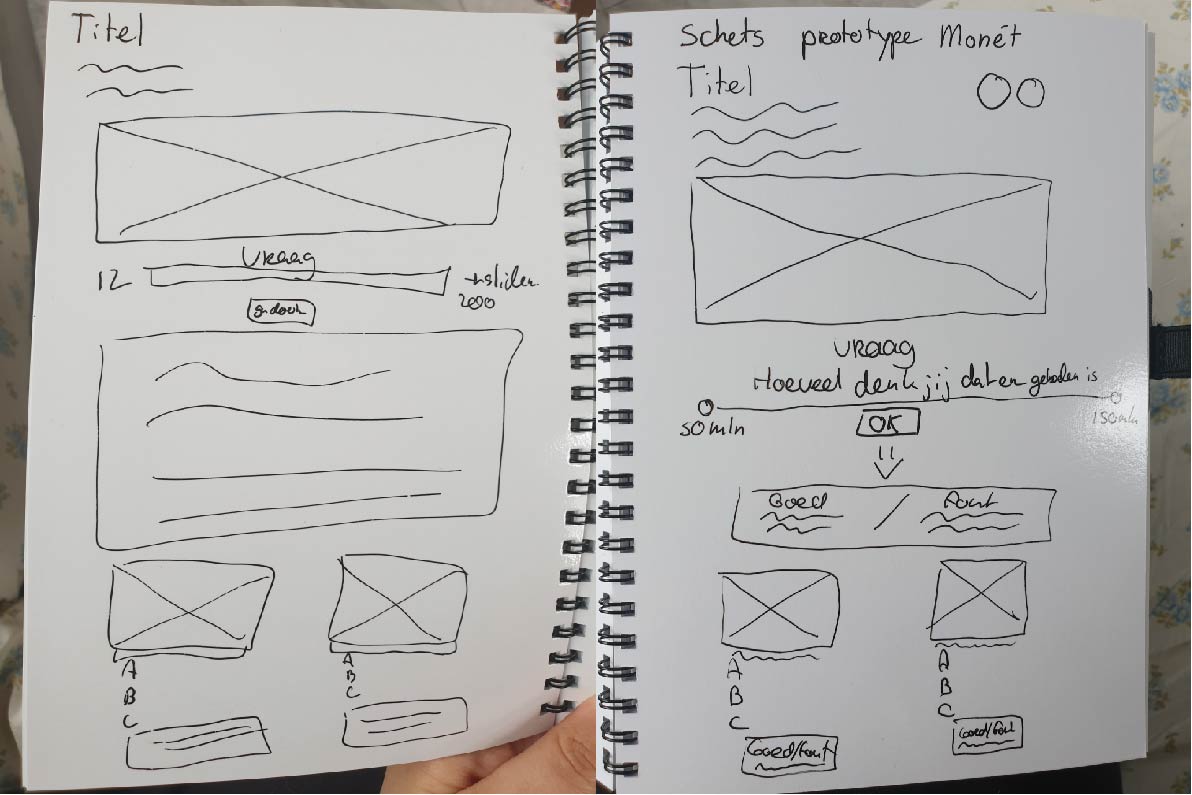 Titel
Vraag
12
→slider
2000
A
B
C
A
B
C
Schets prototype Monét
Titel
Vraag
Hoeveel denk jij dat er geboden is
50 mln
150 mln
OK
Goed / Fout
A
B
C
Goed/Fout
A
B
C
Goed/Fout